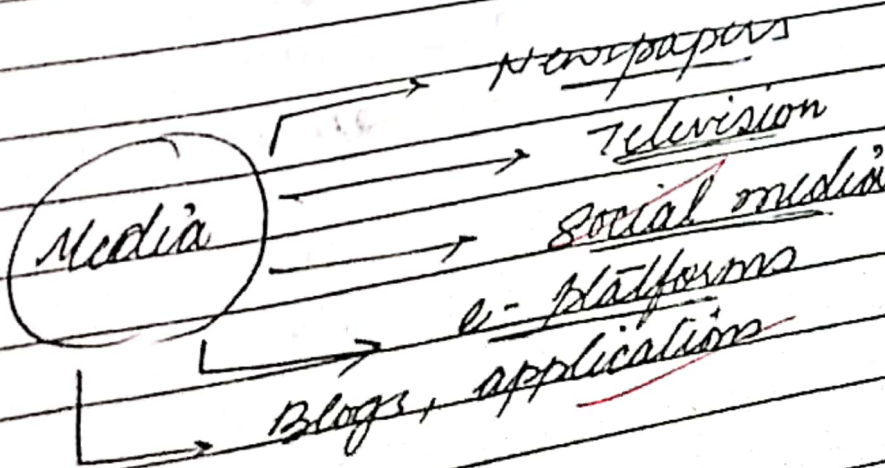 Newspapers
Television
Media
Social media
e-platforms
Blogs, applications